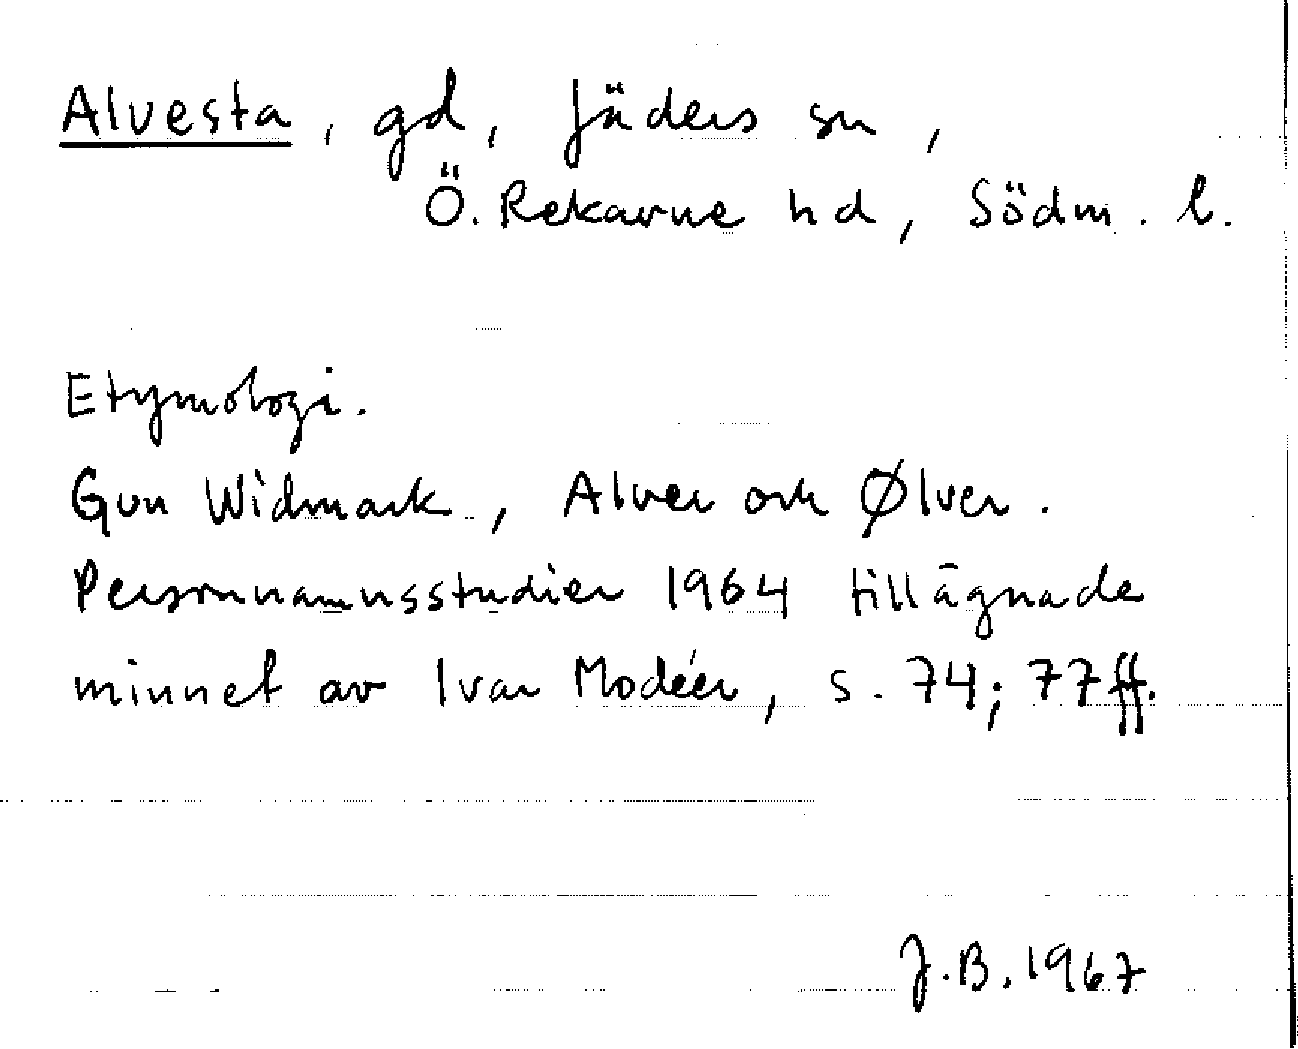 Alvesta, gd, Jäders sn,
Ö. Rekarne hd, Södm. l.
Etymologi.
Gun Widmark, Alver och Ølver.
Personnamnsstudier 1964 tillägnade
minnet av Ivar Modéer, s. 74; 77 ff.
J.B. 1967